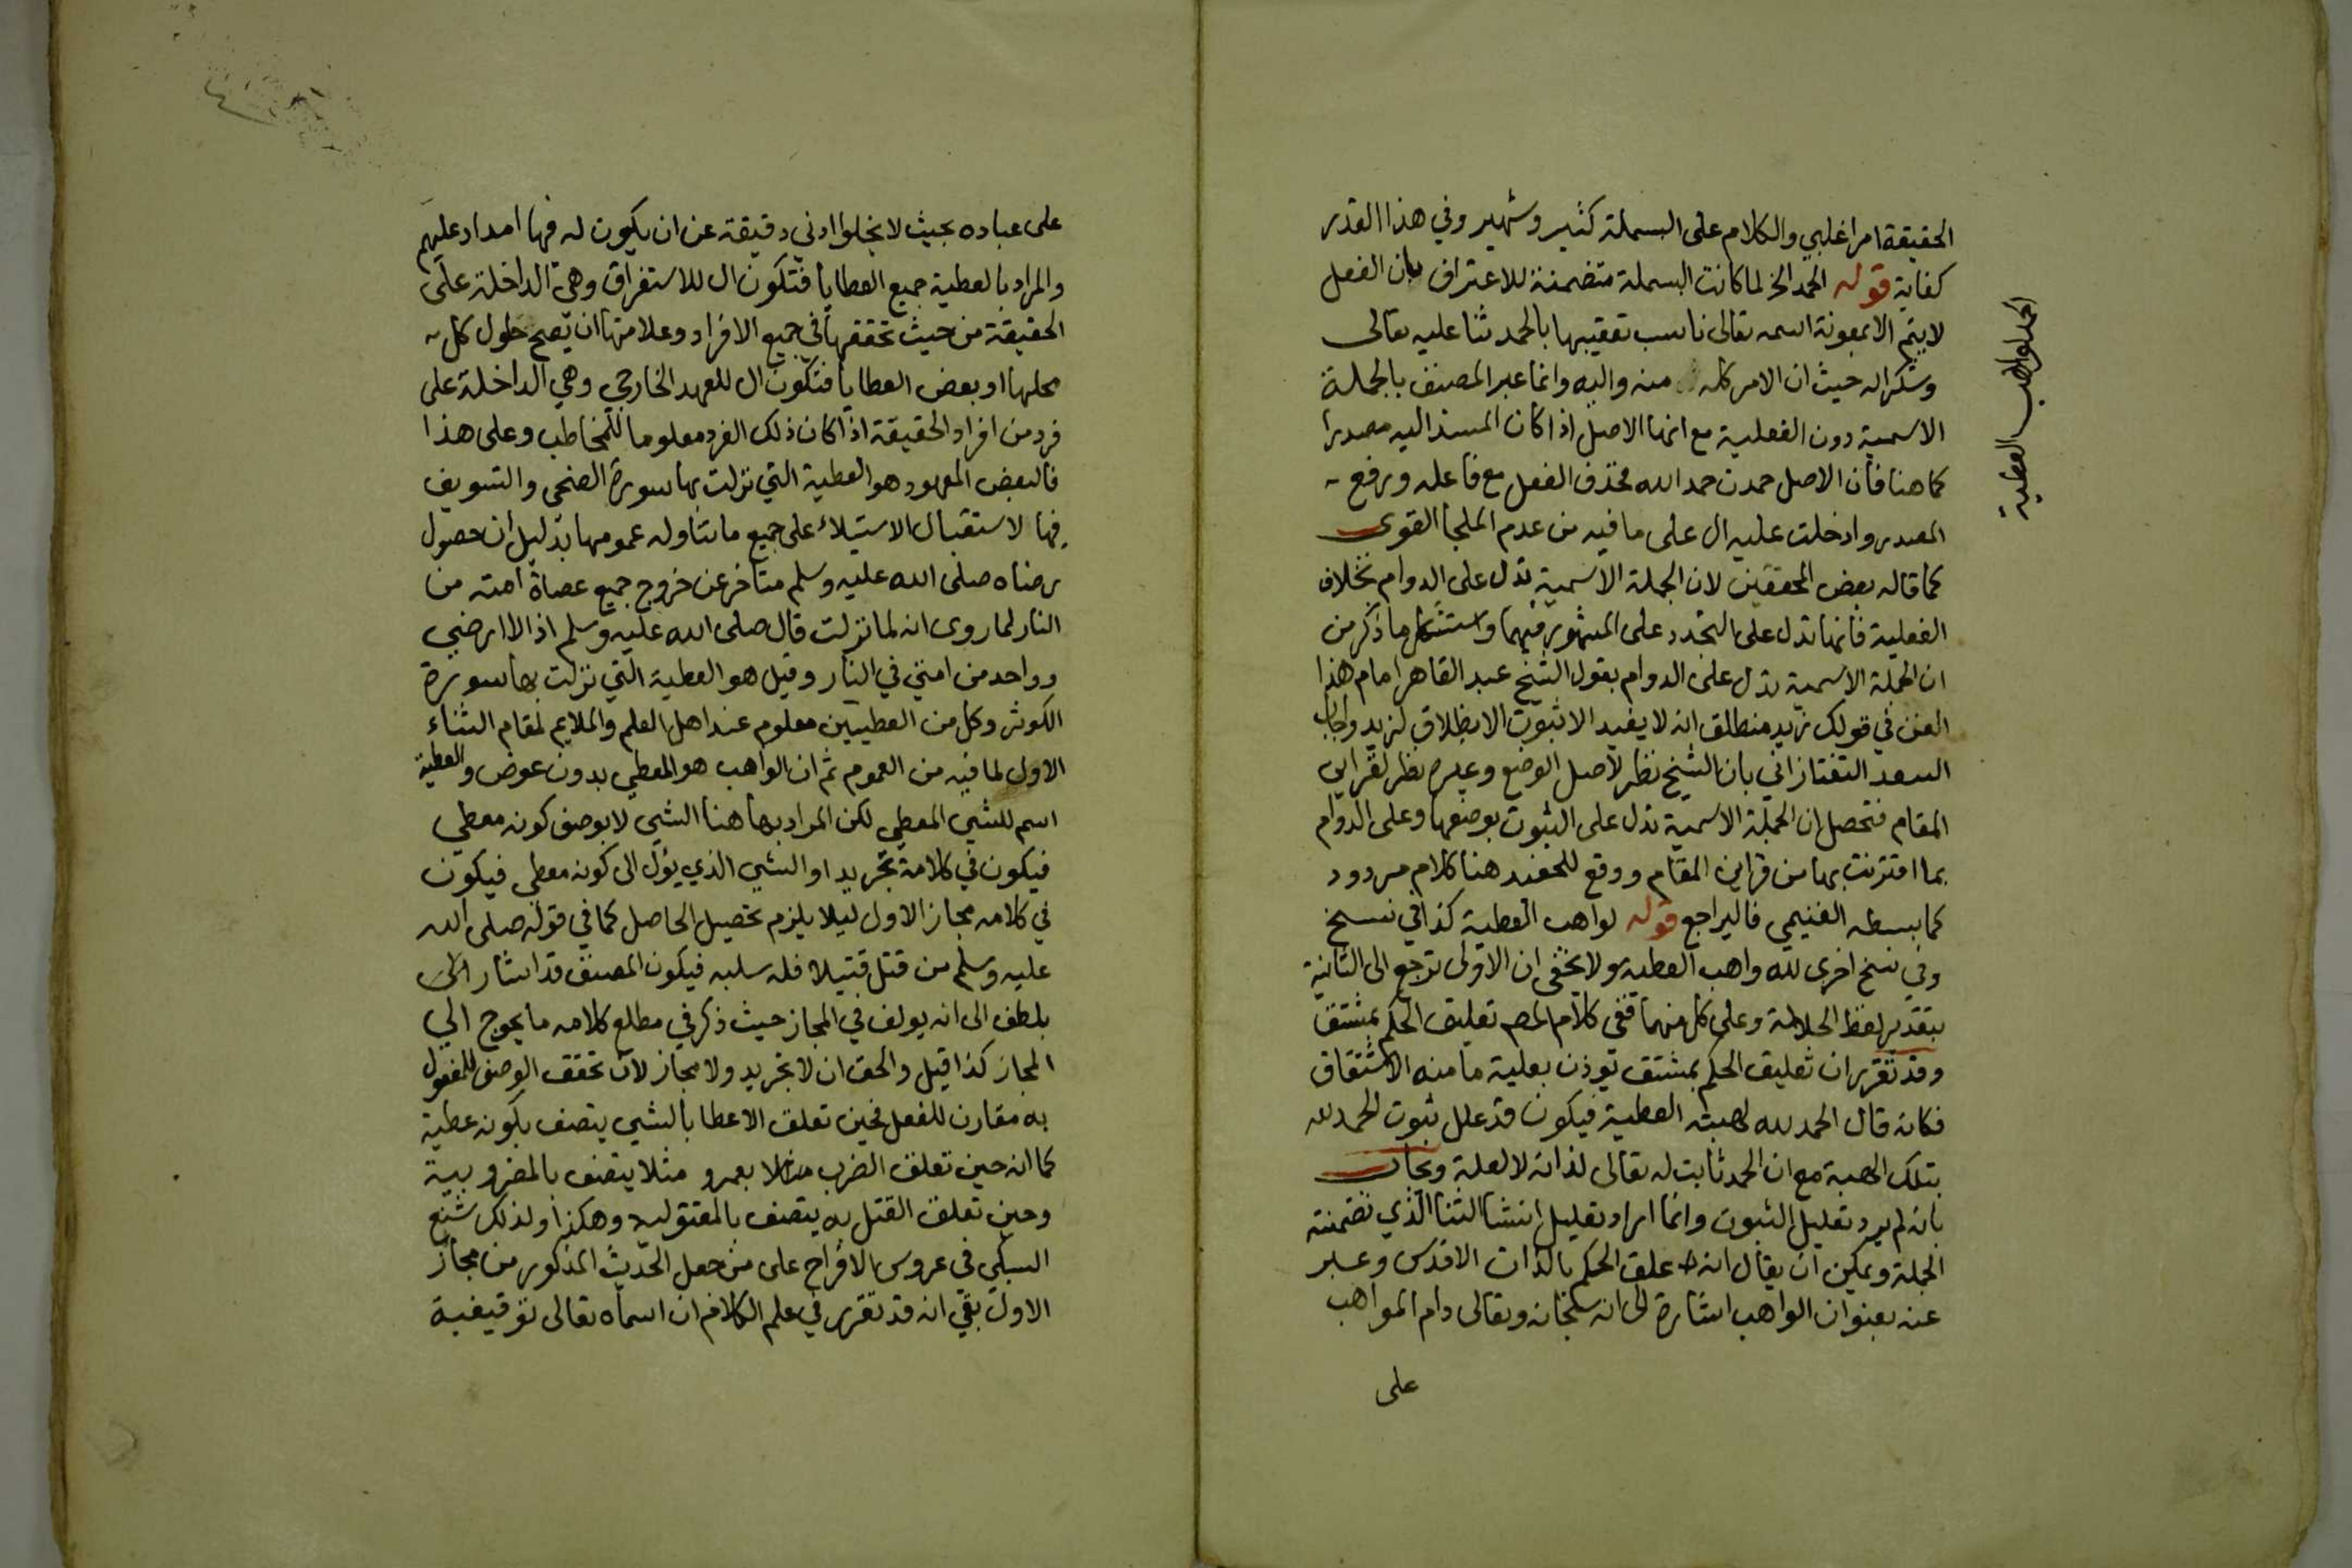 الحقيقة امر اغلبي والكلام على البسملة كثير وشهير وفي هذا القدر
كفاية قوله الحمد الخ لما كانت البسملة متضمنة للاعتراف بان الفعل
لا يتم الا بمعونة اسمه تعالى ناسب تعقيبها بالحمد ثنا عليه تعالى
وشكرا له حيث ان الامر كله منه واليه وانما عبر المصنف بالجملة
الاسمية دون الفعلية مع انها الاصل اذا كان المسند اليه مصدرا
كما هنا فان الاصل حمدت حمد الله فحذف الفعل مع فاعله ورفع
المصدر وادخلت عليه ال على ما فيه من عدم الملجا القوى
كما قاله بعض المحققين لان الجملة الاسمية تدل على الدوام بخلاف
الفعلية فانها تدل على التجدد على المشهور فيهما واستشكل ما ذكر من
ان الجملة الاسمية تدل على الدوام بقول الشيخ عبد القاهر امام هذا
الفن في قولك زيد منطلق انه لا يفيد الا ثبوت الانطلاق لزيد واجاب
السعد التفتازاني بان الشيخ نظر لاصل الوضع وغيره نظر لقراين
المقام فتحصل ان الجملة الاسمية تدل على الثبوت بوضعها وعلى الدوام
بما اقترنت بها من قراين المقام ووقع للحفيد هنا كلام مردود
كما بسطه الغنيمي فاليراجع قوله لواهب العطية كذا في نسخ
وفي نسخ اخرى لله واهب العطية ولا يخفى ان الاولى ترجع الى الثانية
بتقدير لفظ الجلالة وعلى كل منهما ففي كلام المص تعليق الحكم بمشتق
وقد تقرر ان تعليق الحكم بمشتق تؤذن بعلية ما منه الاشتقاق
فكانه قال الحمد لله لهبته العطية فيكون قد علل ثبوت الحمد لله
بتلك الهبة مع ان الحمد ثابت له تعالى لذاته لا لعلة ويجاب
بانه لم يرد تعليل الثبوت وانما اراد تعليل انشا الثنا الذي تضمنته
الجملة ويمكن ان يقال انه علق الحكم بالذات الاقدس وعبر
عنه بعنوان الواهب اشارة الى انه سبحانه وتعالى دام المواهب
على
الحمد لواهب العطية
على عباده بحيث لا يخلوا ادني دقيقة عن ان يكون له فيها امداد عليهم
والمراد بالعطية جميع العطايا فتكون ال للاستغراق وهي الداخلة على
الحقيقة من حيث تحققها في جميع الافراد وعلامتها ان يصح حلول كل
محلها او بعض العطايا فتكون ال للعهد الخارجي وهي الداخلة على
فرد من افراد الحقيقة اذا كان ذلك الفرد معلوما للمخاطب وعلى هذا
فالبعض المعهود هو العطية التي نزلت بها سورة الضحى والتسويف
فيها لاستقبال الاستيلاء على جميع ما تناوله عمومها بدليل ان حصول
رضاه صلى الله عليه وسلم متاخر عن خروج جميع عصاة امته من
النار لما روى انه لما نزلت قال صلى الله عليه وسلم اذا لا ارضي
وواحد من امتي في النار وقيل هو العطية التي نزلت بها سورة
الكوثر وكل من العطيتين معلوم عند اهل العلم والملايم لمقام الثناء
الاول لما فيه من العموم ثم ان الواهب هو المعطي بدون عوض والعطية
اسم للشي المعطى لكن المراد بها هنا الشي لا بوصف كونه معطي
فيكون في كلامه تجريد او الشي الذي يؤل الى كونه معطي فيكون
في كلامه مجاز الاول ليلا يلزم تحصيل الحاصل كما في قوله صلى الله
عليه وسلم من قتل قتيلا فله سلبه فيكون المصنف قد اشار الى
بلطف الى انه يولف في المجاز حيث ذكر في مطلع كلامه ما يحوج الي
المجاز كذا قيل والحق ان لا تجريد ولا مجاز لان تحقق الوصف للمفعول
به مقارن للفعل فحين تعلق الاعطا بالشي يتصف بكونه عطية
كما انه حين تعلق الضرب مثلا بعمرو مثلا يتصف بالمضروبية
وحين تعلق القتل به يتصف بالمقتولية وهكذا ولذلك شنع
السبكي في عروس الافراح على من جعل الحديث المذكور من مجاز
الاول بقي انه قد تقرر في علم الكلام ان اسماه تعالى توقيفية